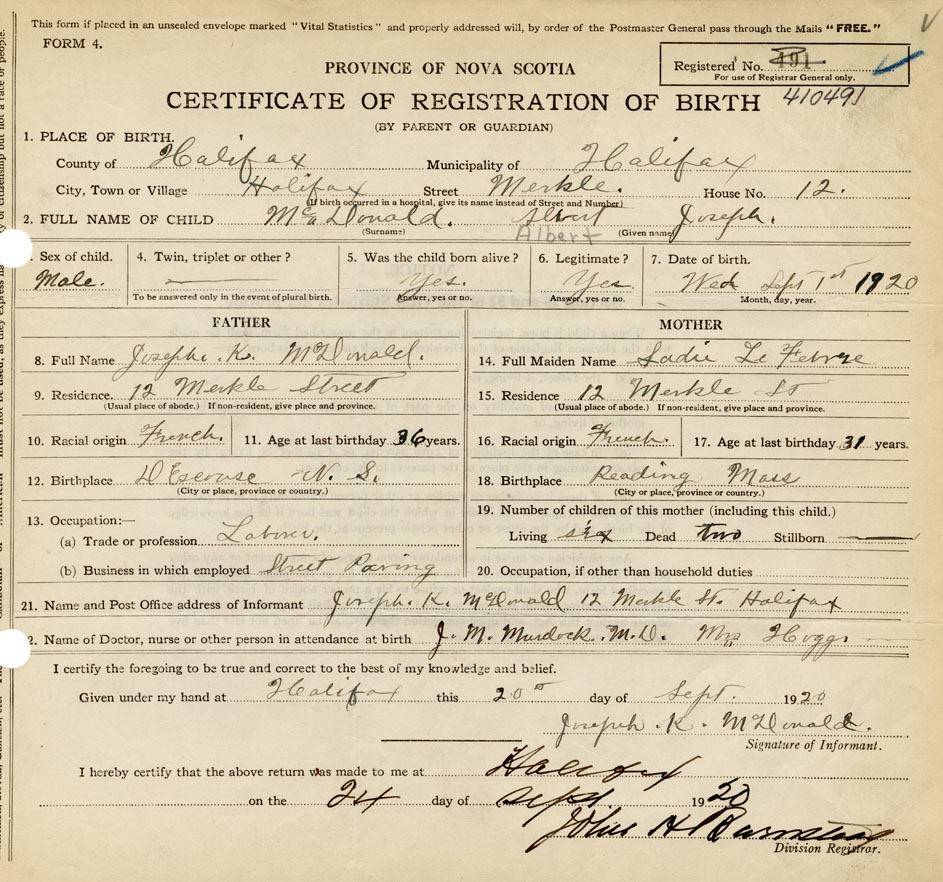 This form if placed in an unsealed envelope marked "Vital Statistics" and properly addressed will, by order of the Postmaster General pass through the Mails "FREE."
FORM 4.
Registered No. 491
For use of Registrar General only.
PROVINCE OF NOVA SCOTIA
CERTIFICATE OF REGISTRATION OF BIRTH 410491
(BY PARENT OR GUARDIAN)
1. PLACE OF BIRTH.
County of Halifax Municipality of Halifax
City, Town or Village Halifax Street Merkle. House No. 12.
(If birth occurred in a hospital, give its name instead of Street and Number)
2. FULL NAME OF CHILD McDonald. Albert Joseph.
(Surname) Albert (Given name)
Sex of child. 4. Twin, triplet or other? 5. Was the child born alive? 6. Legitimate? 7. Date of birth.
Male. Yes. Yes Wed Sept 1st 1920
To be answered only in the event of plural birth. Answer, yes or no. Answer, yes or no. Month, day, year.
FATHER MOTHER
8. Full Name Joseph. K. McDonald. 14. Full Maiden Name Sadie Le Febvre
9. Residence 12 Merkle Street 15. Residence 12 Merkle St
(Usual place of abode.) If non-resident, give place and province. (Usual place of abode.) If non-resident, give place and province.
10. Racial origin French. 11. Age at last birthday 36 years. 16. Racial origin French. 17. Age at last birthday 31 years.
12. Birthplace D'Escouse N. S. 18. Birthplace Reading Mass
(City or place, province or country.) (City or place, province or country.)
13. Occupation:— 19. Number of children of this mother (including this child.)
(a) Trade or profession Laborer. Living six Dead two Stillborn
(b) Business in which employed Street Paving 20. Occupation, if other than household duties
21. Name and Post Office address of Informant Joseph. K. McDonald 12 Merkle St. Halifax
2. Name of Doctor, nurse or other person in attendance at birth J. M. Murdock. M.D. Mrs Hogg.
I certify the foregoing to be true and correct to the best of my knowledge and belief.
Given under my hand at Halifax this 20th day of Sept. 1920
Joseph. K. McDonald.
Signature of Informant.
I hereby certify that the above return was made to me at Halifax
on the 24 day of Sept 1920
John H Barnstead
Division Registrar.